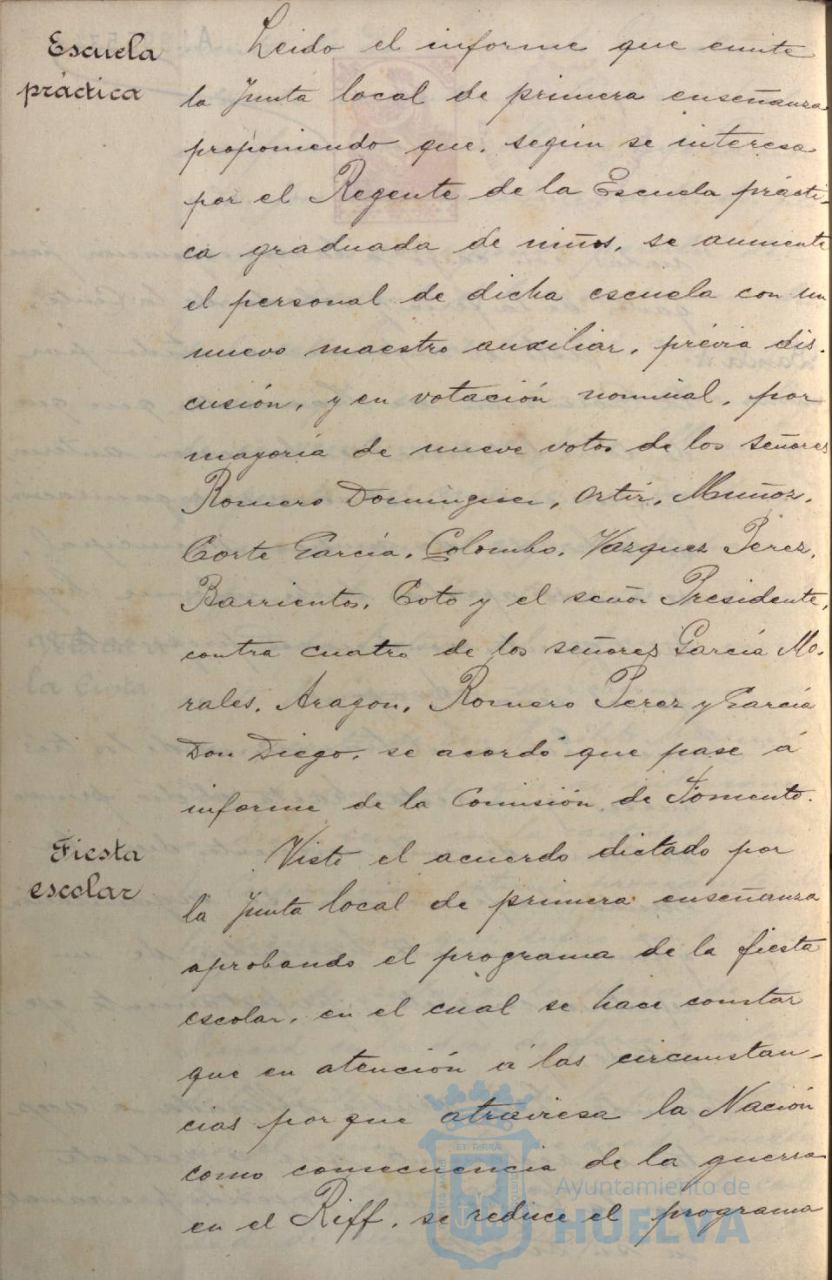 Escuela
práctica
Leido el informe que emite
la Junta local de primera enseñanza
proponiendo que, según se interesa
por el Regente de la Escuela prácti-
ca graduada de niños, se aumente
el personal de dicha escuela con un
nuevo maestro auxiliar, prévia dis-
cusión, y en votación nominal, por
mayoría de nueve votos de los señores
Romero Dominguez, Ortiz, Muñoz,
Corte García, Colombo, Vazquez Perez,
Barrientos, Coto y el señor Presidente,
contra cuatro de los señores García Mo-
rales, Aragon, Romero Perez y García
Don Diego, se acordó que pase á
informe de la Comisión de Fomento.
Fiesta
escolar
Visto el acuerdo dictado por
la Junta local de primera enseñanza
aprobando el programa de la fiesta
escolar, en el cual se hace constar
que en atención á las circunstan-
cias porque atraviesa la Nación
como consecuencia de la guerra
en el Riff, se reduce el programa
Ayuntamiento de
HUELVA